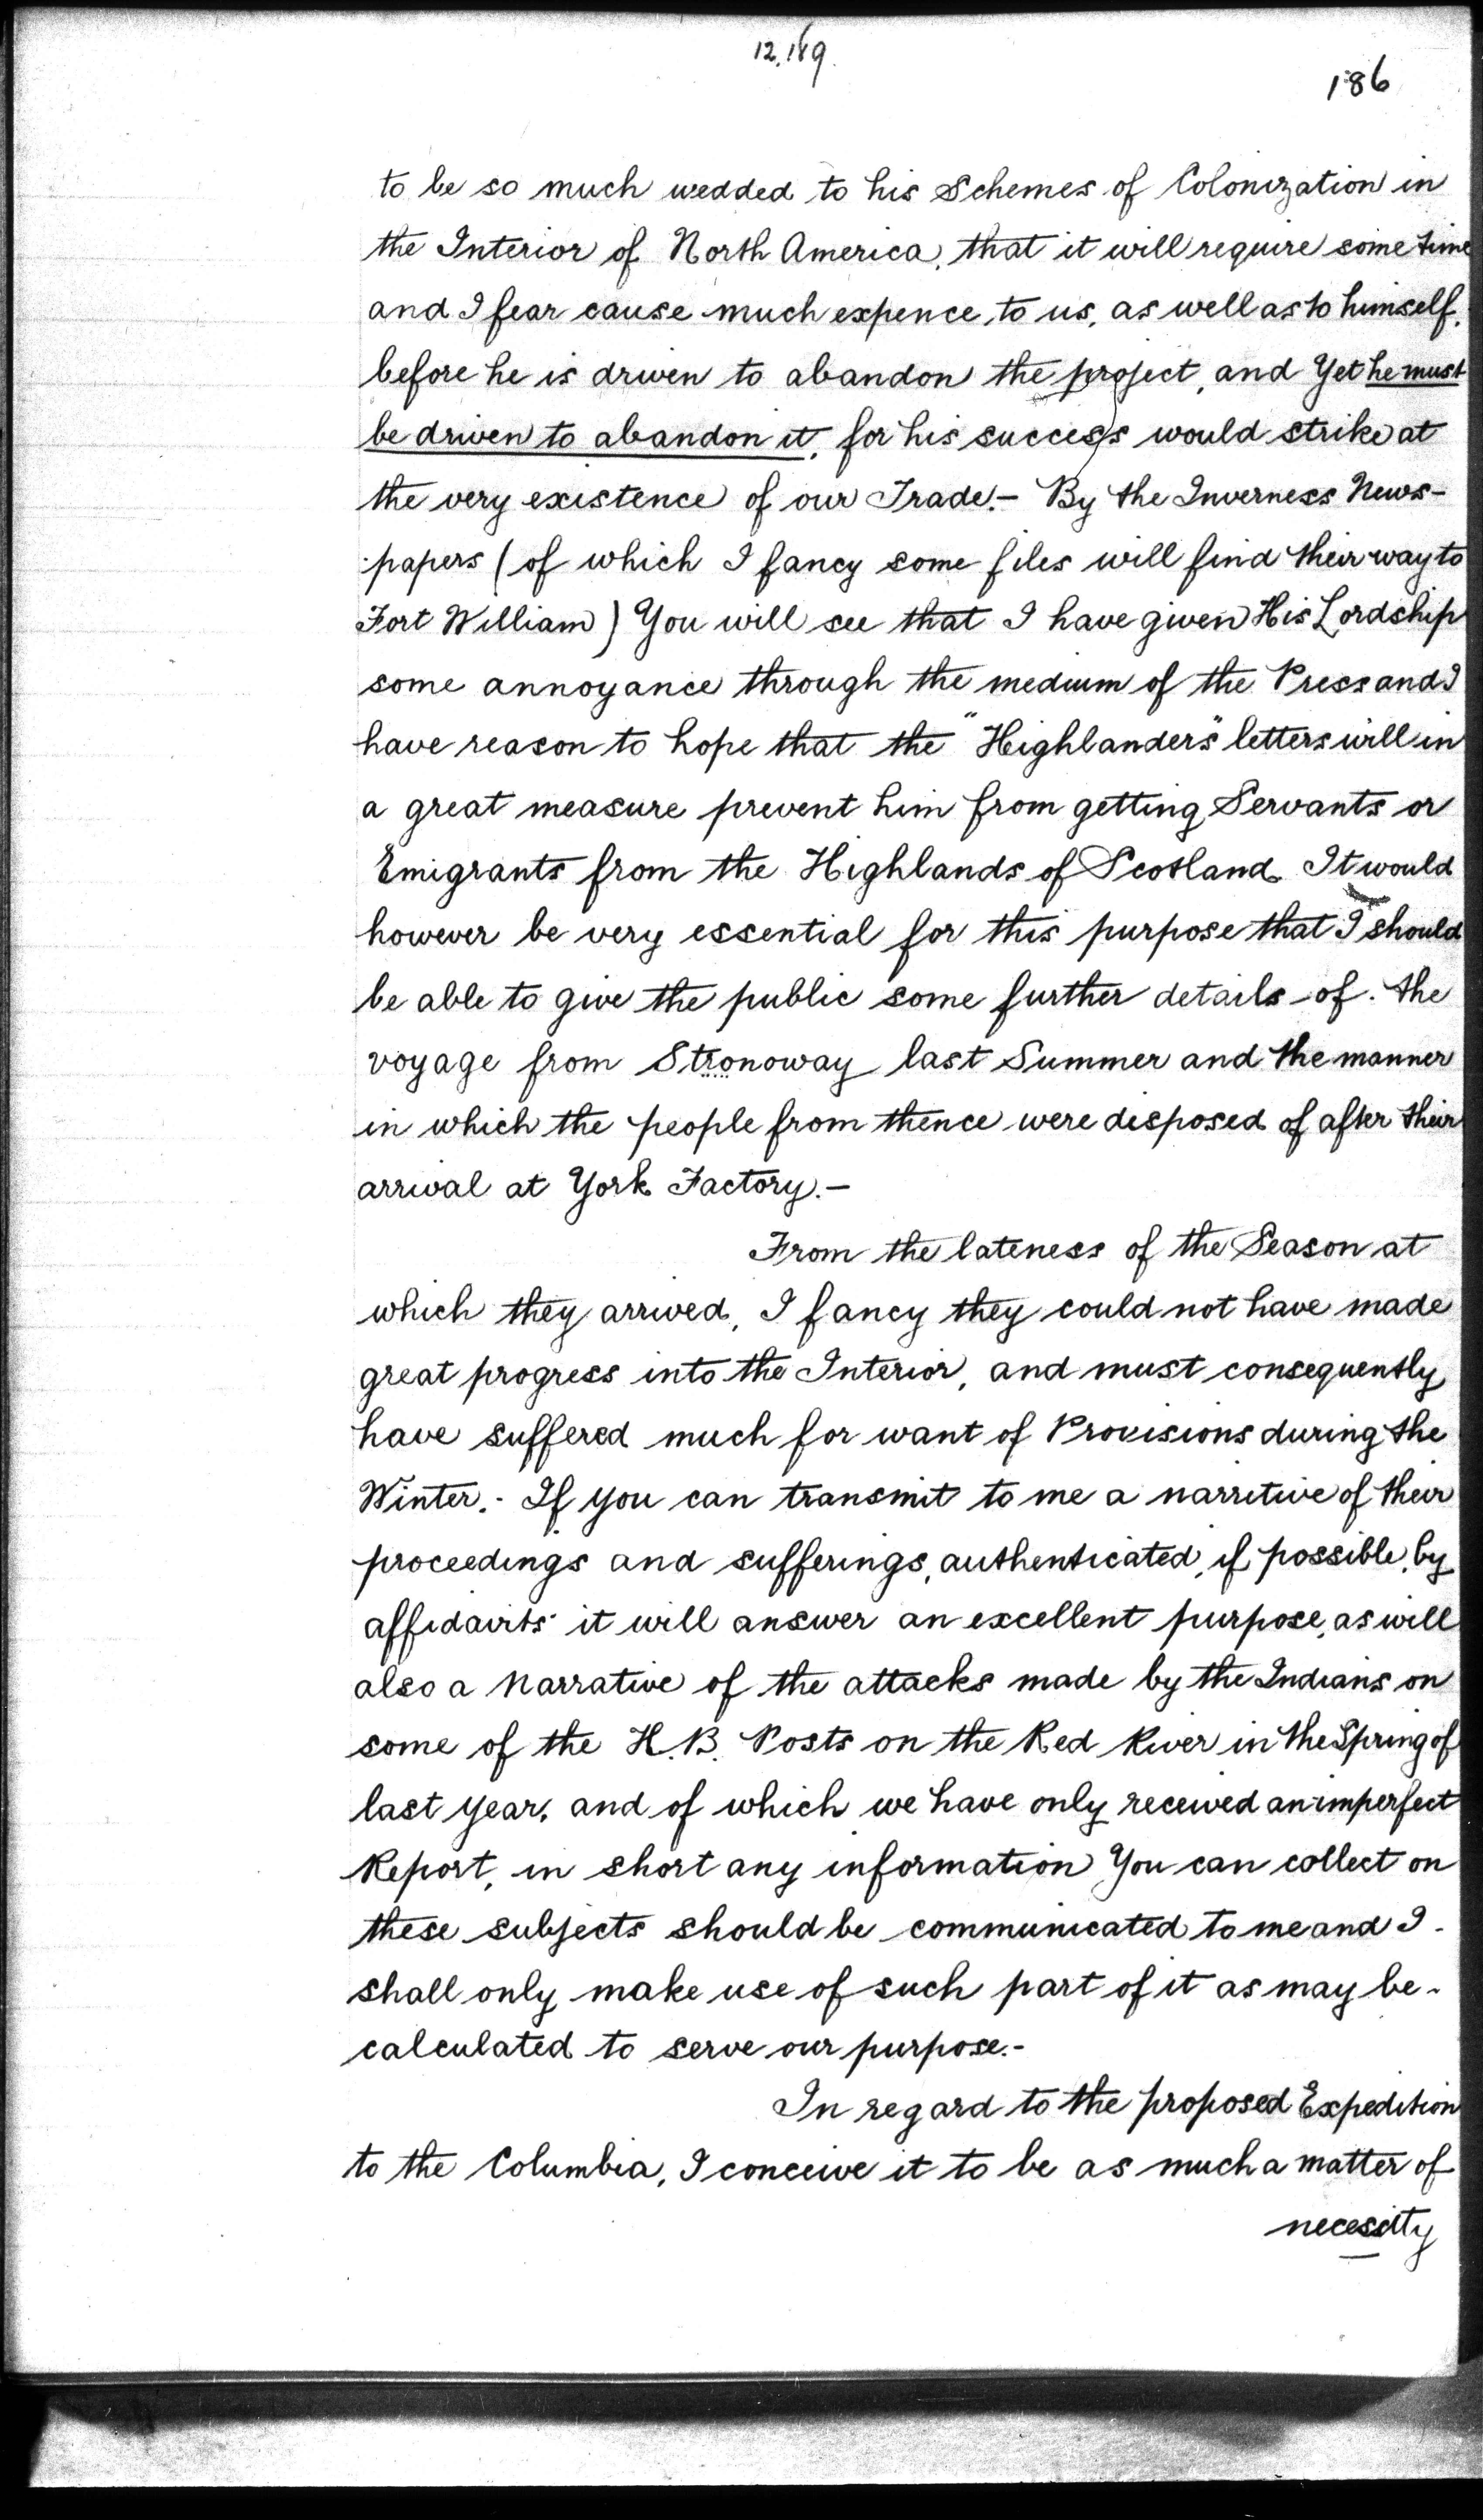 12,189.
186
to be so much wedded to his Schemes of Colonization in
the Interior of North America, that it will require some time
and I fear cause much expence to us, as well as to himself,
before he is driven to abandon the project, and Yet he must
be driven to abandon it, for his success would strike at
the very existence of our Trade.- By the Inverness News-
papers (of which I fancy some files will find their way to
Fort William) You will see that I have given His Lordship
some annoyance through the medium of the Press and I
have reason to hope that the "Highlanders" letters will in
a great measure prevent him from getting Servants or
Emigrants from the Highlands of Scotland. It would
however be very essential for this purpose that I should
be able to give the public some further details of the
voyage from Stronoway last Summer and the manner
in which the people from thence were disposed of after their
arrival at York Factory.-
From the lateness of the Season at
which they arrived, I fancy they could not have made
great progress into the Interior, and must consequently
have suffered much for want of Provisions during the
Winter.- If you can transmit to me a narritive of their
proceedings and sufferings, authenticated, if possible, by
affidavits it will answer an excellent purpose, as will
also a Narrative of the attacks made by the Indians on
some of the H.B. Posts on the Red River in the Spring of
last year, and of which we have only received an imperfect
Report, in short any information You can collect on
these subjects should be communicated to me and I
shall only make use of such part of it as may be
calculated to serve our purpose.-
In regard to the proposed Expedition
to the Columbia, I conceive it to be as much a matter of
necessity